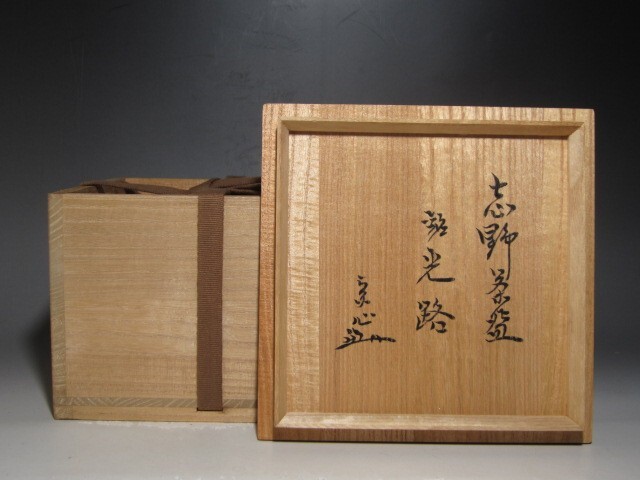 志野茶盌
銘 光路
宗心